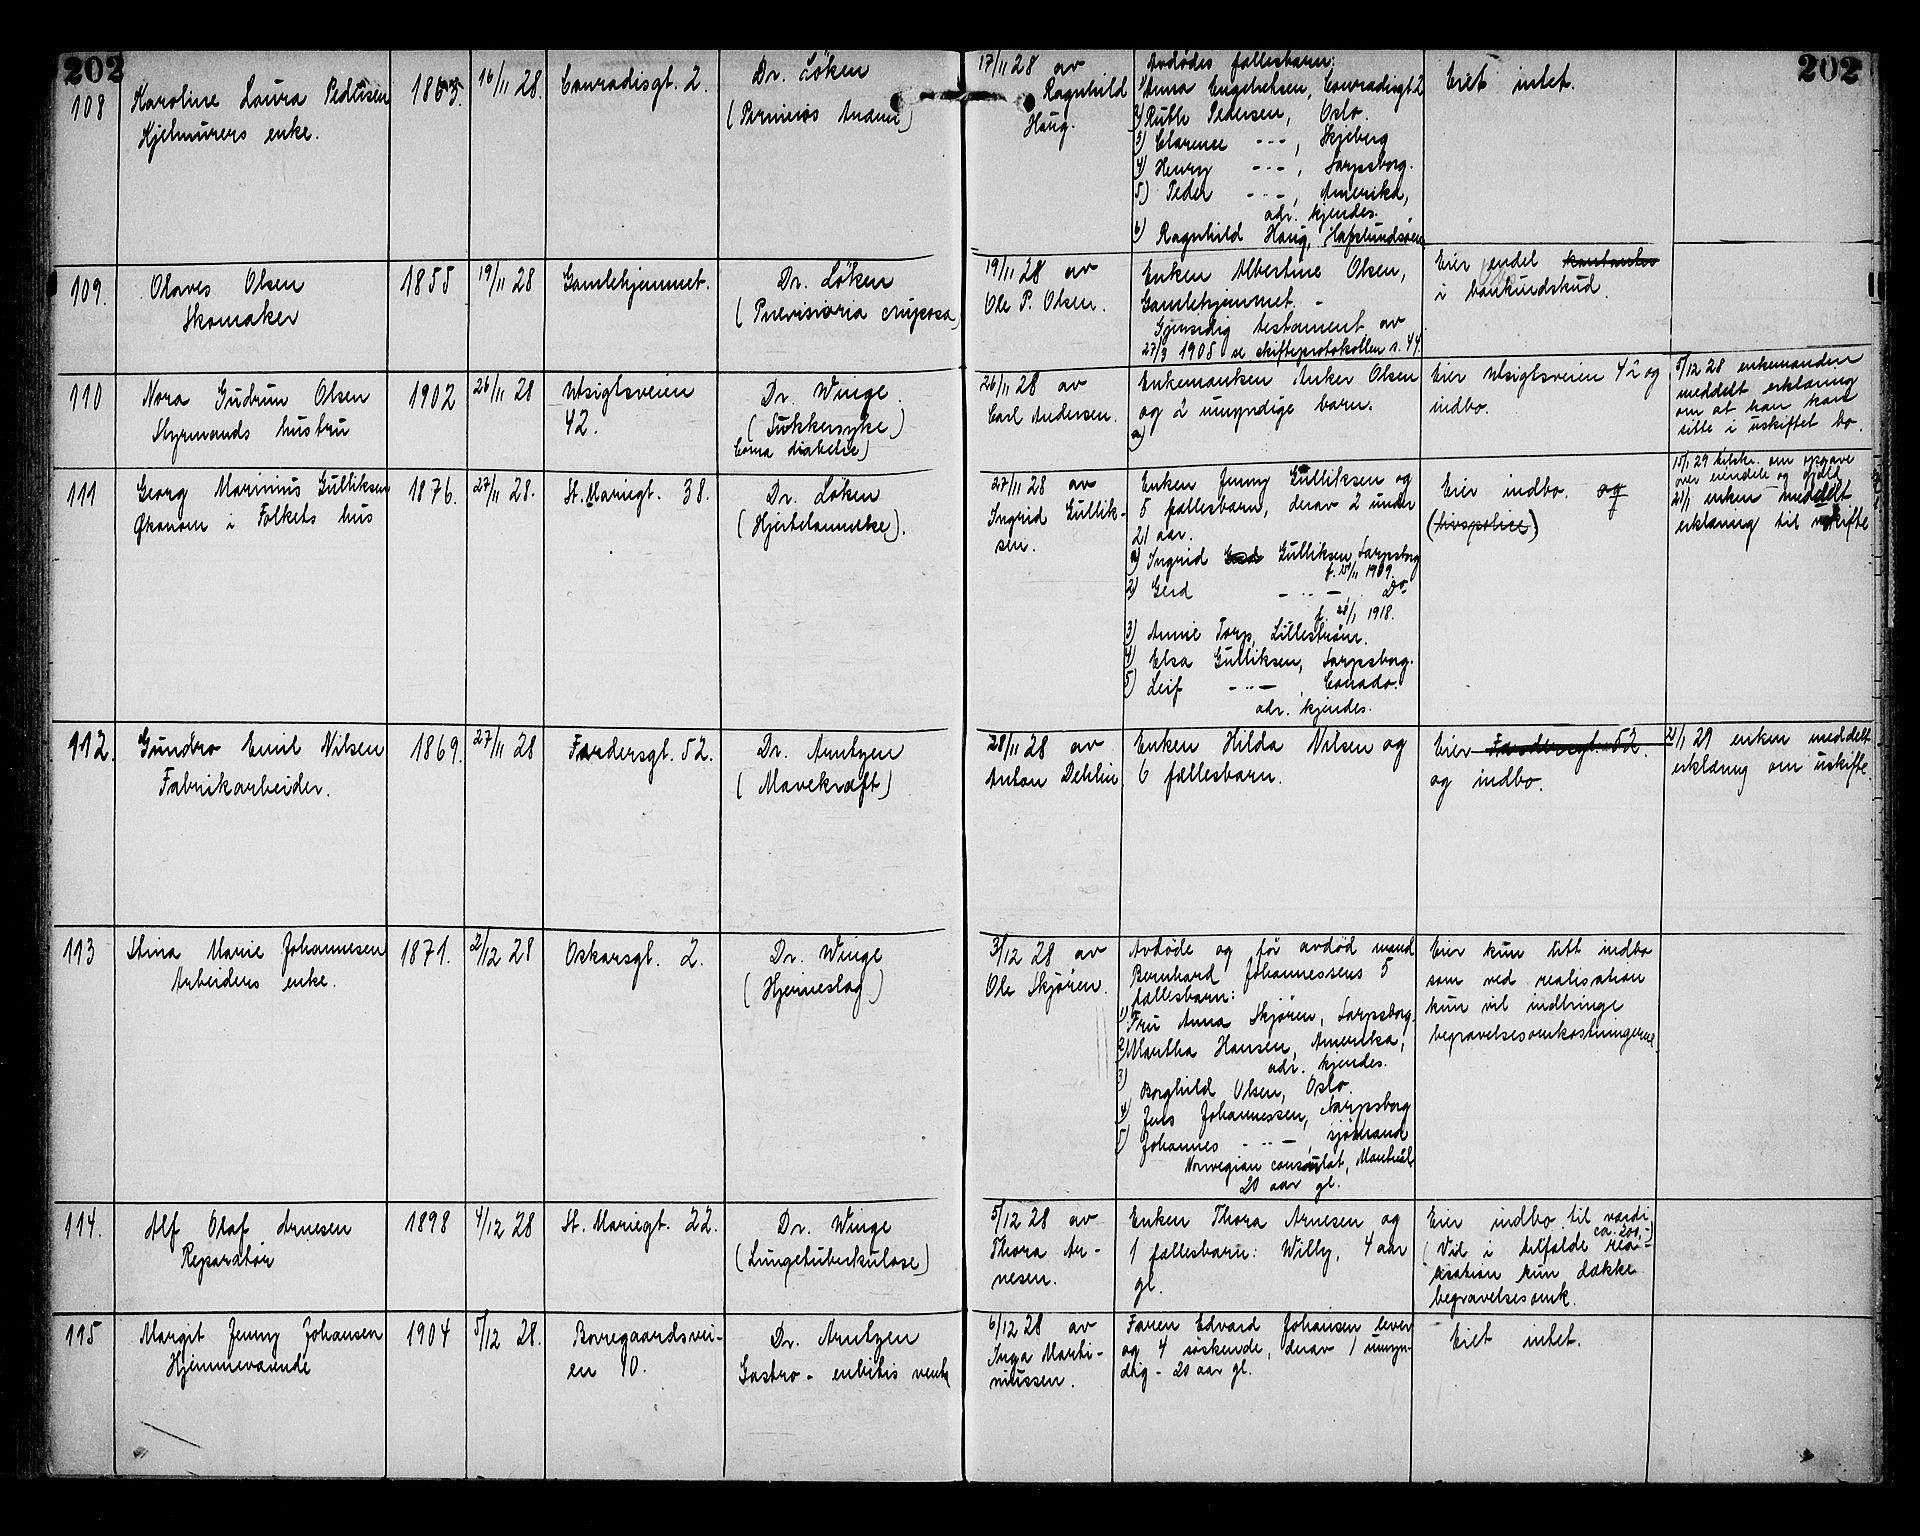 202
202
108
Karoline Laura Pedersen
Kjelmurers enke.
1863.
16/11 28.
Conradisgt. 2.
Dr. Löken
(Perniciøs Anæmi)
17/11 28 av
Ragnhild
Haug.
Avdødes fællesbarn:
1) Anna Engebretsen, Conradisgt 2
2) Ruth Pedersen, Oslo.
3) Clarence - - - , Skjeberg
4) Henry - - - , Sarpsborg.
5) Peder - - - , Amerika,
adr. kjendes.
6) Ragnhild Haug, Hafslundsøen
Eiet intet.
109.
Olaves Olsen
Skomaker
1855
19/11 28
Gamlehjemmet.
Dr. Löken
19/11 28 av
Ole P. Olsen.
Enken Albertine Olsen,
Gamlehjemmet. -
Gjensidig testament av
27/3 1905 se skifteprotokollen s. 44.
Eier endel kontanter
i bankindskud.
110
Nora Gudrun Olsen
Styrmands hustru
1902
26/11 28
Utsigtsveien
42.
Dr. Winge.
(Sukkersyke)
Coma diabetic)
26/11 28 av
Carl Andersen.
Enkemanken Anker Olsen
og 2 umyndige barn.
Eier Utsigtsveien 42 og
indbo.
5/12 28 enkemanden
meddelt erklæring
om at han kan
sitte i uskiftet bo.
111
Georg Marinius Gulliksen
Økonom i Folkets hus
1876.
27/11 28.
St. Mariegt. 38.
Dr. Löken
(Hjertelammelse).
27/11 28 av
Ingrid Gullik-
sen.
Enken Jenny Gulliksen og
5 fællesbarn, derav 2 under
21 aar.
1) Ingrid Gulliksen, Sarpsborg
f. 15/11 1909.
2) Gerd - - - , Do.
f. 28/1 1918.
3) Annie Torp, Lillestrøm.
4) Elsa Gulliksen, Sarpsborg.
5) Leif - - - , Canada.
adr. kjendes.
Eier indbo. og
(livspolice)
15/1 29 tilskr. om opgave
over eiendele og gjeld
21/1 enken meddelt
erklæring til uskifte
112.
Gunbro Emil Nilsen
Fabrikarbeider.
1869.
27/11 28
Færdersgt. 52.
Dr. Arntzen
(Mavekræft)
28/11 28 av
Anton Dehlin
Enken Hilda Nilsen og
6 fællesbarn.
Eier Færdersgt. 52.
og indbo.
21/1 29 enken meddelt
erklæring om uskifte.
113
Stina Marie Johannesen
Arbeiders enke.
1871.
2/12 28
Oskarsgt. 2.
Dr. Winge
(Hjerneslag)
3/12 28 av
Ole Skjøren.
Avdøde og før avdød mand
Bernhard Johannessens 5
fællesbarn:
1) Fru Anna Skjøren, Sarpsborg.
2) Martha Hansen, Amerika,
adr. kjendes.
3) Borghild Olsen, Oslo.
4) Jens Johannessen, Sarpsborg
5) Johannes - - - , sjømand
Norwegian consulat, Montreal
20 aar gl.
Eier kun litt indbo
som ved realisation
kun vil indbringe
begravelsesomkostningerne.
114.
Alf Olaf Arnesen
Reparatør
1898
4/12 28
St. Mariegt. 22.
Dr. Winge
(Lungetuberkulose)
5/12 28 av
Thora Ar-
nesen.
Enken Thora Arnesen og
1 fællesbarn: Willy, 4 aar
gl.
Eier indbo til værdi
ca. 200,-)
(Vil i tilfælde rea-
lisation kun dække
begravelsesomk.
115
Margit Jenny Johansen
Hjemmeværende
1904
5/12 28.
Borregaardsvei-
en 10.
Dr. Arntzen
Gastro-enteritis
6/12 28 av
Inga Marti-
niussen.
Faren Edvard Johansen lever
og 4 søskende, derav 1 umyn-
dig - 20 aar gl.
Eiet intet.